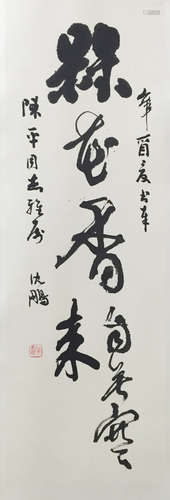 楳花香自苦寒来
辛酉夏书奉
陳平同志雅属
沈鹏